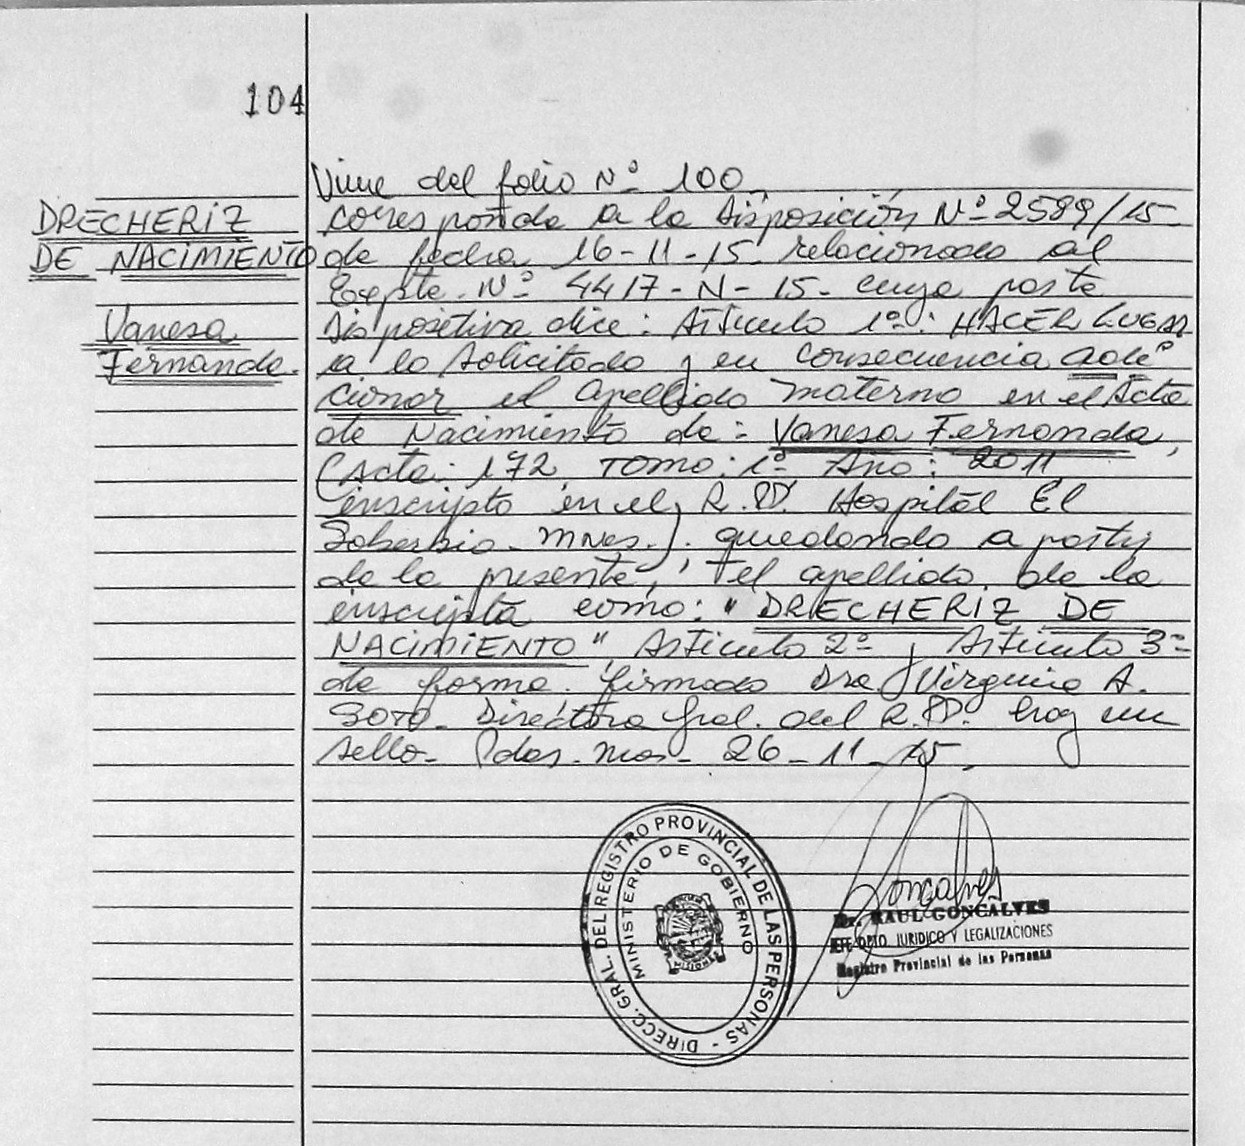 104
Viene del folio Nº 100
DRECHERIZ
DE NACIMIENTO
Vanesa
Fernanda.
corresponde a la Disposición Nº 2589/15
de fecha 16-11-15 relacionado al
Expte. Nº 4417-N-15- cuya parte
dispositiva dice: Artículo 1º: HACER LUGAR
a lo solicitado y en consecuencia adi-
cionar el apellido materno en el Acta
de Nacimiento de: Vanesa Fernanda,
(Acta: 172 Tomo: 1º Año: 2011
inscripta en el R.PP. Hospital El
Soberbio - Mnes.). quedando a partir
de la presente, el apellido de la
inscripta como: "DRECHERIZ DE
NACIMIENTO", Artículo 2º y Artículo 3º
de forma. firmado Dra Virginia A.
SOTO. Directora Gral. del R.PP. hay un
sello. Pdas. Mnes- 26-11-15.
DIRECC. GRAL. DEL REGISTRO PROVINCIAL DE LAS PERSONAS -
MINISTERIO DE GOBIERNO
MISIONES
Goncalves
Dr. RAUL GONCALVES
JEFE DPTO JURIDICO Y LEGALIZACIONES
Registro Provincial de las Personas